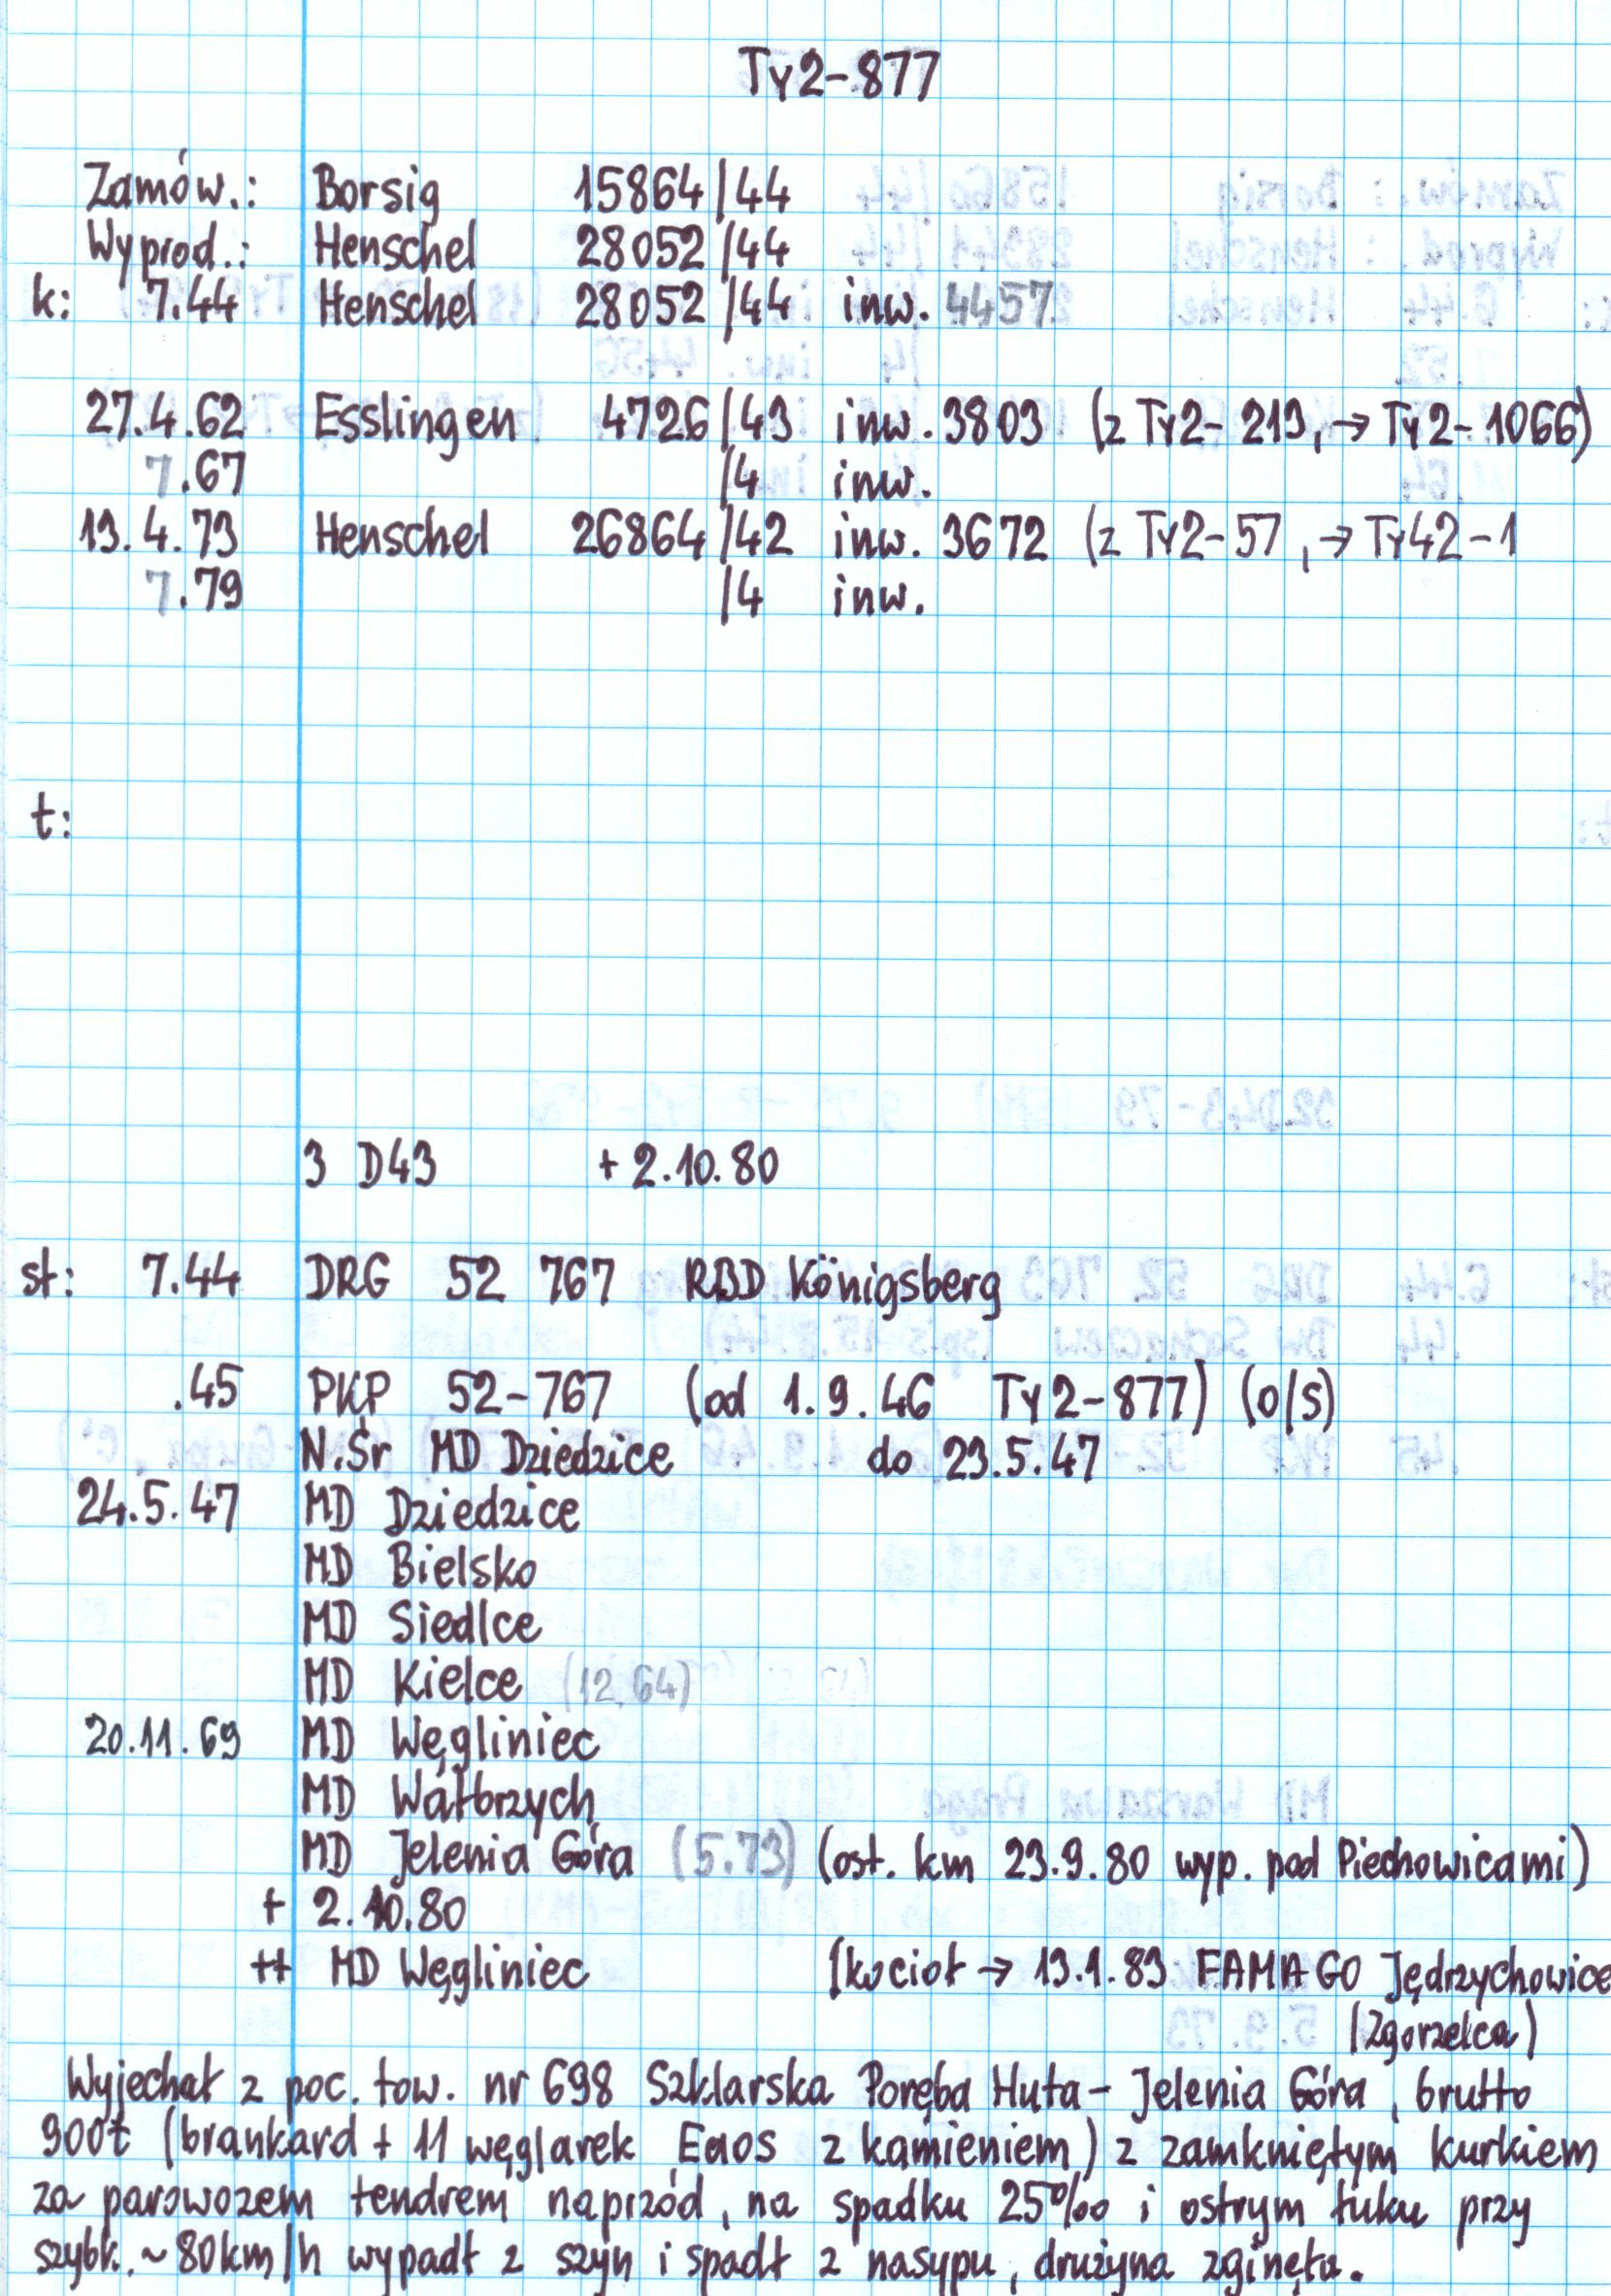 Ty2-877
Zamów.: Borsig 15864/44
Wyprod.: Henschel 28052/44
k: 7.44 Henschel 28052/44 inw. 4457
27.4.62 Esslingen 4726/43 inw. 3803 (z Ty2-213, → Ty2-1066)
7.67 /4 inw.
13.4.73 Henschel 26864/42 inw. 3672 (z Ty2-57, → Ty42-1
7.79 /4 inw.
t:
3 D43 + 2.10.80
st: 7.44 DRG 52 767 RBD Königsberg
.45 PKP 52-767 (od 1.9.46 Ty2-877) (o/s)
N.Śr MD Dziedzice do 23.5.47
24.5.47 MD Dziedzice
MD Bielsko
MD Siedlce
MD Kielce (12.64)
20.11.69 MD Węgliniec
MD Wałbrzych
MD Jelenia Góra (5.73) (ost. km 23.9.80 wyp. pod Piechowicami)
+ 2.10.80
++ MD Węgliniec [kocioł → 13.1.83 FAMAGO Jędrzychowice
(Zgorzelca)
Wyjechał z poc. tow. nr 698 Szklarska Poręba Huta - Jelenia Góra, brutto
900t (brankard + 11 węglarek Eaos z kamieniem) z zamkniętym kurkiem
za parowozem tendrem naprzód, na spadku 25‰ i ostrym łuku przy
szybk. ~80km/h wypadł z szyn i spadł z nasypu, drużyna zginęła.